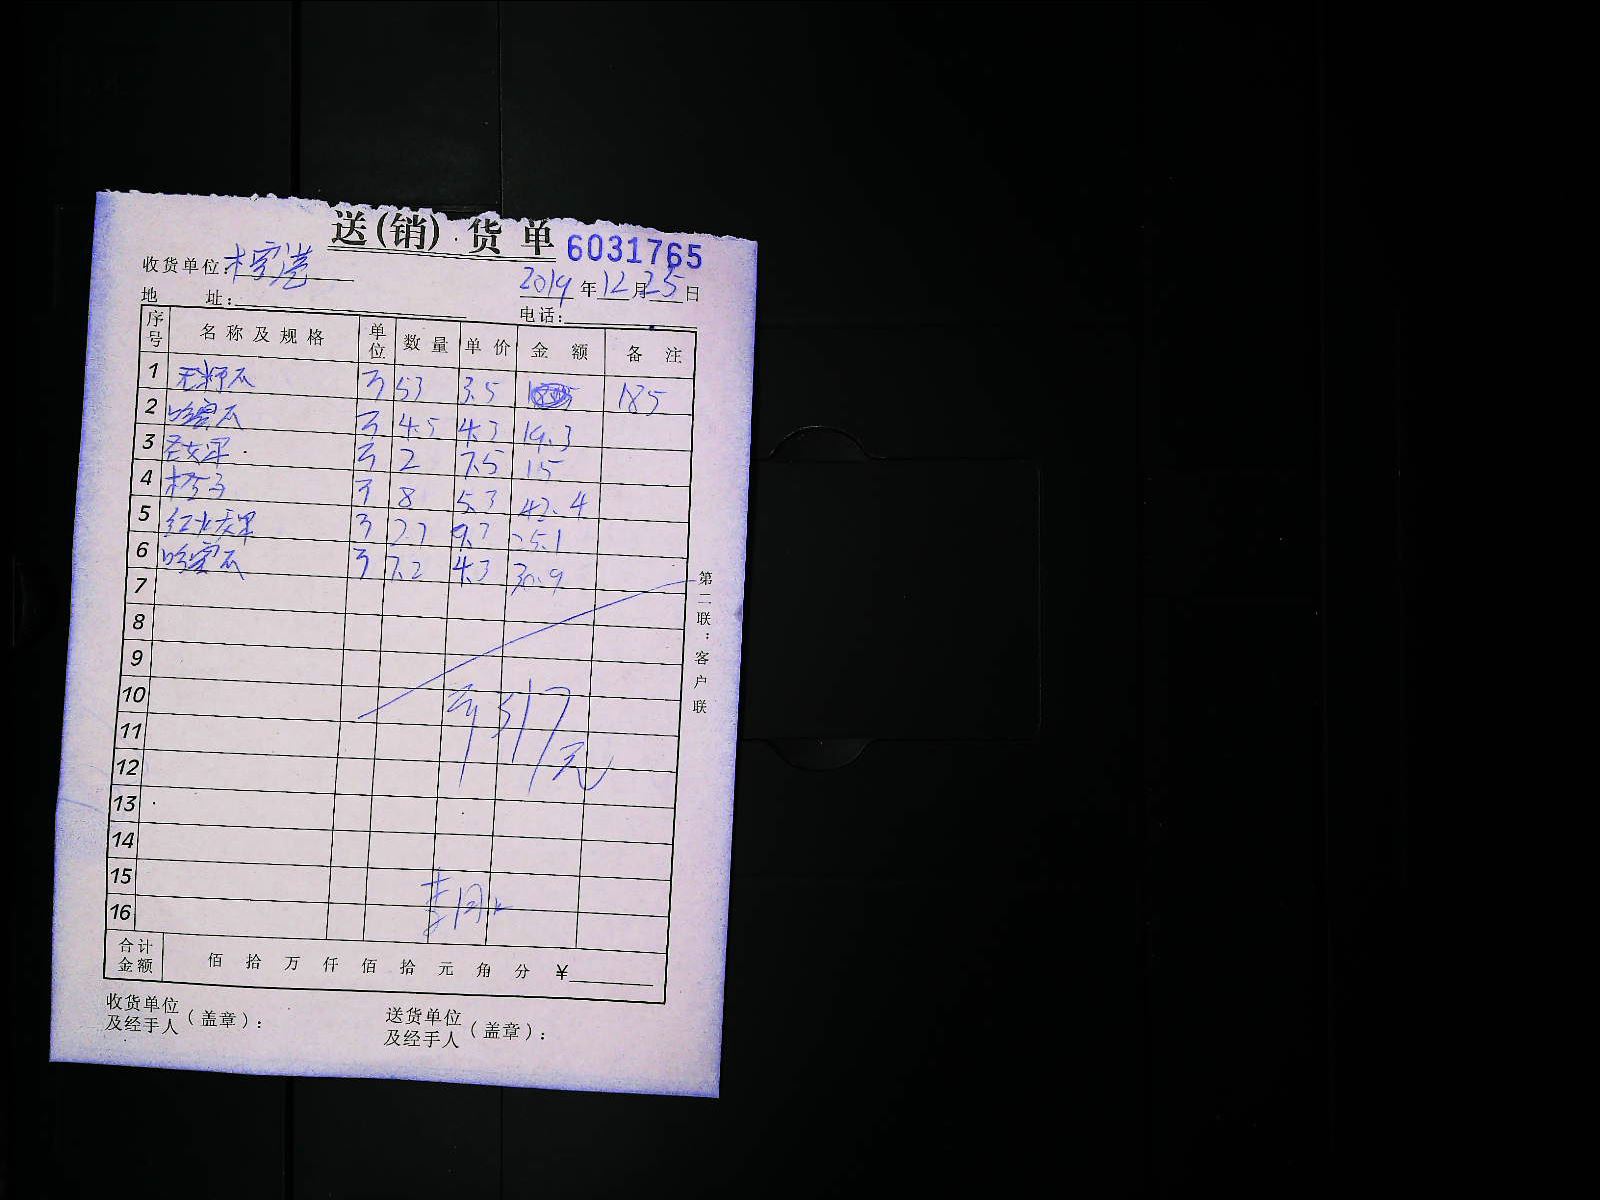 送(销)货单 6031765
收货单位:
2019年12月25日
地 址:
电话:
序号 名称及规格 单位 数量 单价 金额 备注
1 无籽瓜 斤 53 3.5 185
2 哈密瓜 斤 4.5 4.3 19.3
3 圣女果 斤 2 7.5 15
4 橙子 斤 8 5.3 42.4
5 红火龙果 斤 2.7 9.3 25.1
6 哈密瓜 斤 7.2 4.3 30.9
7
8
9
10
11
517元
12
13
14
15
16
合计金额 佰 拾 万 仟 佰 拾 元 角 分 ¥
收货单位及经手人(盖章):
送货单位及经手人(盖章):
第二联:客户联